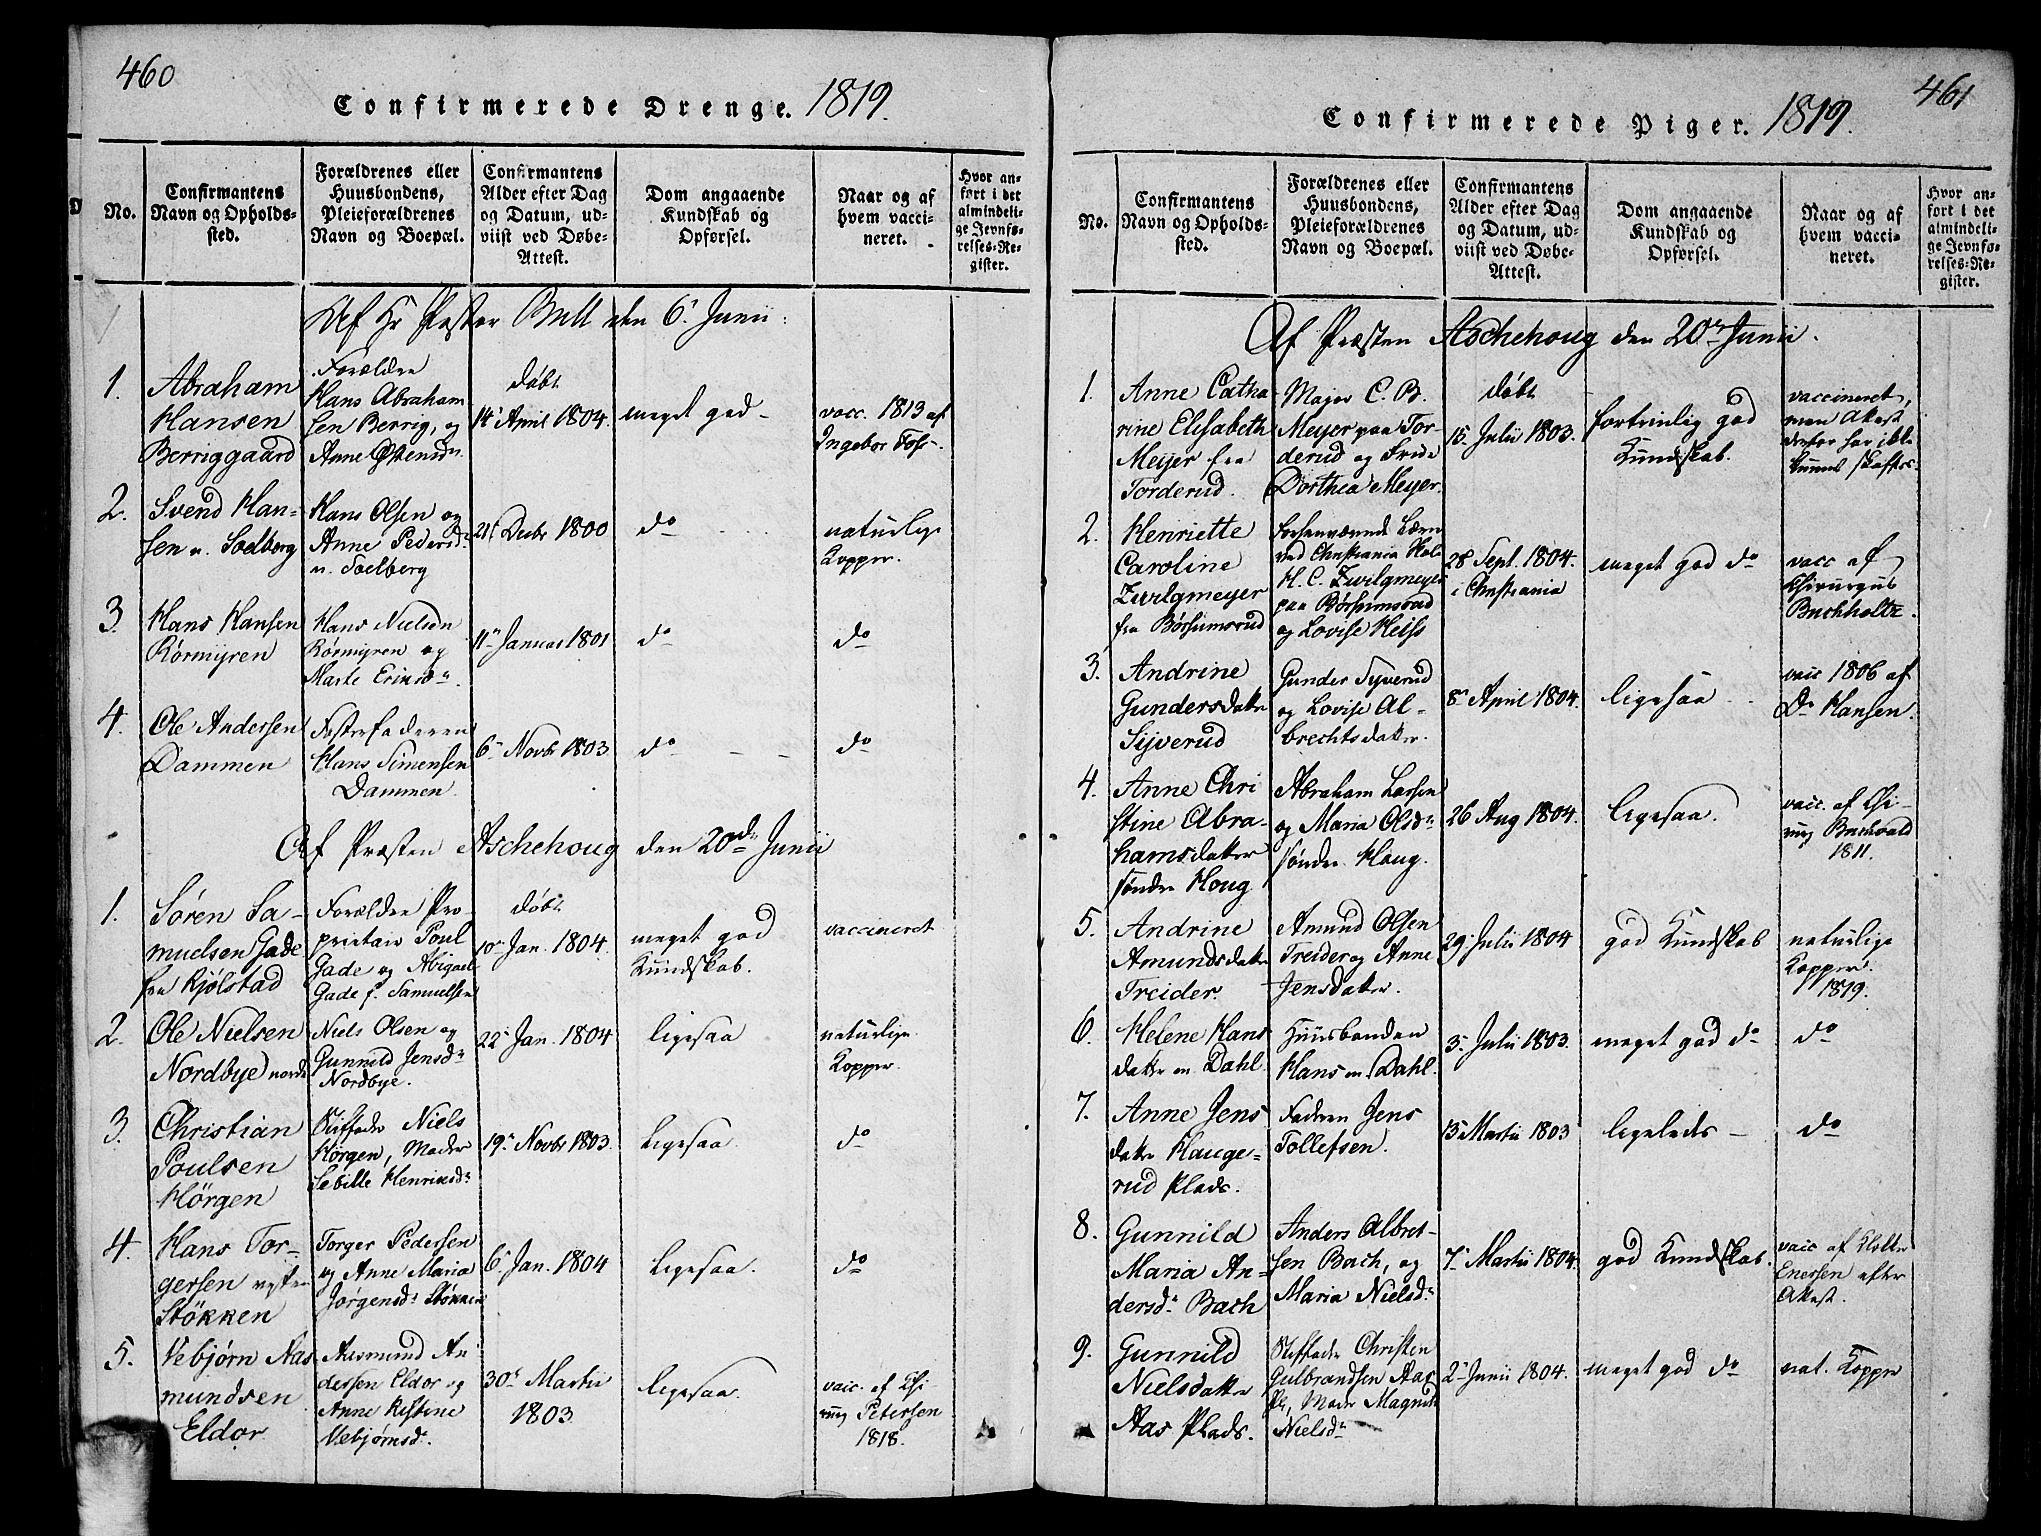 460
Confirmerede Drenge. 1819.
No.
Confirmantens
Navn og Opholds-
sted.
Forældrenes eller
Huusbondens,
Pleieforældrenes
Navn og Boepæl.
Confirmantens
Alder efter Dag
og Datum, ud-
viist ved Døbe-
Attest.
Dom angaaende
Kundskab og
Opførsel.
Naar og af
hvem vacci-
neret.
Hvor an-
ført i det
almindeli-
ge Jevnfø-
relses-Re-
gister.
Af Hr Pastor Bull den 6 Junii
1.
Abraham
Hansen
Berriggaard
Forældre
Hans Abraham
sen Berrig, og
Anne Østensdr
døbt
14 April 1804.
meget god
vacc. 1813 af
Ingebor Foss
2.
Svend Han-
sen n. Soelberg
Hans Olsen og
Anne Pedersd
n. Soelberg
21 Decbr 1800
do
naturlige
Kopper.
3.
Hans Hansen
Körmyren
Hans Nielsen
Körmyren og
Marte Ericsdr
11 Januar 1801
do
do
4.
Ole Andersen
Dammen
Fosterfaderen
Hans Simensen
Dammen
6 Novbr 1803
do
do
Af Præsten Aschehoug den 20de Junii
1.
Sören Sa-
muelsen Gade
fra Kjölstad
Forældre Pro-
prietair Poul
Gade og Abigael
Gade f. Samuelsen
döbt
10 Jan. 1804.
meget god
Kundskab.
vaccineret
2.
Ole Nielsen
Nordbye nordr
Niels Olsen og
Gunnild Jensdr
Nordbye.
22 Jan. 1804
ligesaa
naturlige
Kopper
3.
Christian
Poulsen
Hörgen
Stiffader Niels
Hörgen, Moder
Sebille Henricsdr
19 Novbr 1803.
Ligesaa.
do
4.
Hans Tor-
gersen vestre
Stökken
Torger Pedersen
og Anne Maria
Jörgensdr Stökken
6 Jan. 1804
Ligesaa.
do
5.
Vebjörn Aas
mundsen
Eldor
Aasmund An
dersen Eldor og
Anne Kistine
Vebjörnsdr.
30 Martii
1803
ligesaa.
vacc. af Chi-
rurg Petersen
1818.
461
Confirmerede Piger. 1819.
No.
Confirmantens
Navn og Opholds-
sted.
Forældrenes eller
Huusbondens,
Pleieforældrenes
Navn og Boepæl.
Confirmantens
Alder efter Dag
og Datum, ud-
viist ved Døbe-
Attest.
Dom angaaende
Kundskab og
Opførsel.
Naar og af
hvem vacci-
neret.
Hvor an-
ført i det
almindeli-
ge Jevnfø-
relses-Re-
gister.
Af Præsten Aschehoug den 20de Junii.
1.
Anne Catha
rine Elisabeth
Meyer fra
Torderud.
Major C. B.
Meyer paa Tor-
derud og Frue
Dorthea Meyer.
döbt
15 Julii 1803.
fortrinlig god
Kundskab.
vaccineret,
men Attest
derfor har ikke
kunnet skaffes.
2.
Henriette
Caroline
Zwilgmeyer
fra Börsumsrud
ved Christiania
H. C. Zwilgmeyer
paa Börsumsrud
og Lovise Heiss
28 Sept. 1804.
i Christiania
meget god do
vacc af
Chirurgus
Buchholtz.
3.
Andrine
Gundersdatter
Sijverud
Gunder Syverud
og Lovise Al-
brechtsdatter.
8 April 1804.
ligesaa
vacc 1806 af
Dr Hansen.
4.
Anne Chri
stine Abra-
hamsdatter
söndre Houg
Abraham Larsen
og Maria Olsdr
söndre Haug.
26 Aug 1804.
ligesaa.
vacc. af Chi-
rurg Buchvald
1811.
5.
Andrine
Amundsdatter
Treider.
Amund Olsen
Treider og Anne
Jensdatter.
29 Julii 1804
god Kundskab
naturlige
Kopper.
1819.
6.
Helene Hans
datter en Dahl.
Huusbonden
Hans en Dahl.
3 Julii 1803.
meget god do
do
7.
Anne Jens
datter Hauge-
rud Plads.
Faderen Jens
Tollefsen.
13 Martii 1803
ligeleds
do
8.
Gunnild
Maria An-
dersdr Bach
Anders Albret-
sen Bach, og
Maria Nielsdr
7 Martii 1804.
god Kundskab.
vacc af Klokker
Enersen efter
Attest.
9.
Gunnild
Nielsdatter
Aas Plads.
Stiffader Christen
Gulbrandsen Aas
Pl, Moder Magnild
Nielsdr
2 Junii 1804.
meget god do
nat. Kopper